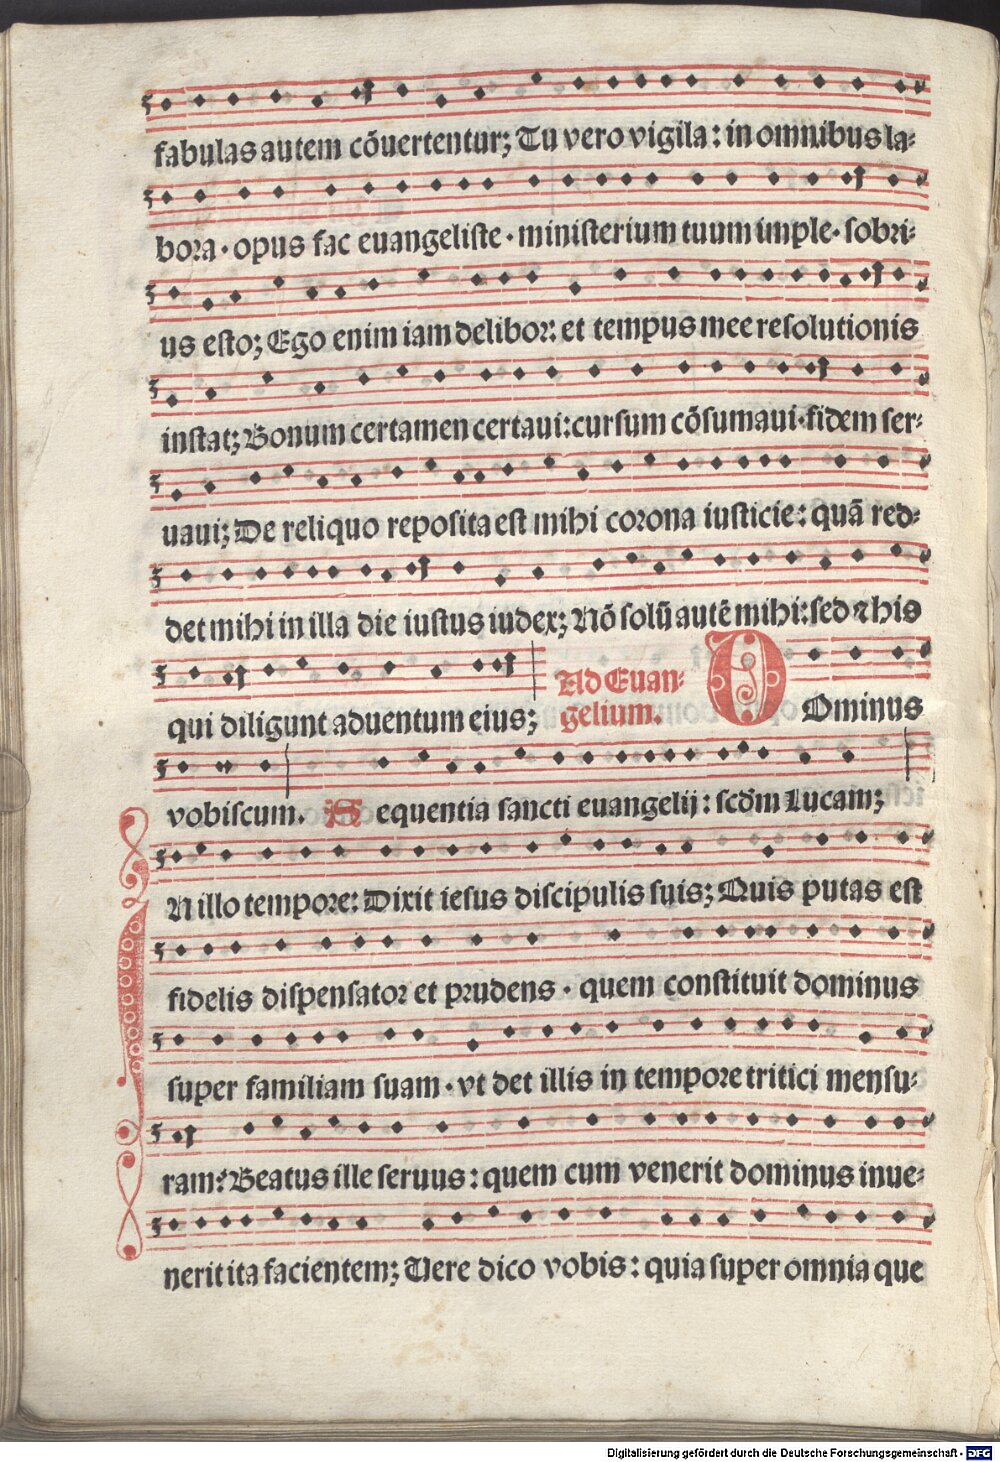 fabulas autem cōuertentur; Tu vero vigila: in omnibus la-
bora · opus fac euangeliste · ministerium tuum imple · sobri-
us esto; Ego enim iam delibor: et tempus mee resolutionis
instat; Bonum certamen certaui: cursum cōsumaui · fidem ser-
uaui; De reliquo reposita est mihi corona iusticie: quā red-
det mihi in illa die iustus iudex; Nō solū autē mihi: sed ⁊ his
qui diligunt aduentum eius;
Ad Euan-
gelium.
DOminus
vobiscum. Sequentia sancti euangelij: scd̄m Lucam;
IN illo tempore: Dixit iesus discipulis suis; Quis putas est
fidelis dispensator et prudens · quem constituit dominus
super familiam suam · vt det illis in tempore tritici mensu-
ram? Beatus ille seruus: quem cum venerit dominus inue-
nerit ita facientem; Vere dico vobis: quia super omnia que
Digitalisierung gefördert durch die Deutsche Forschungsgemeinschaft - DFG